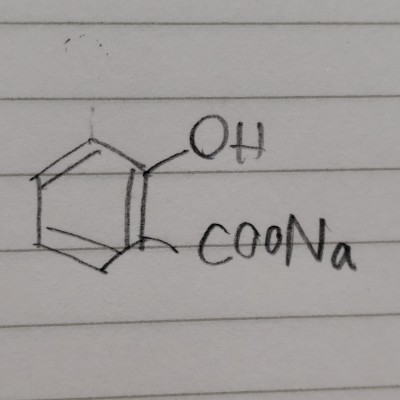 OH
COONa